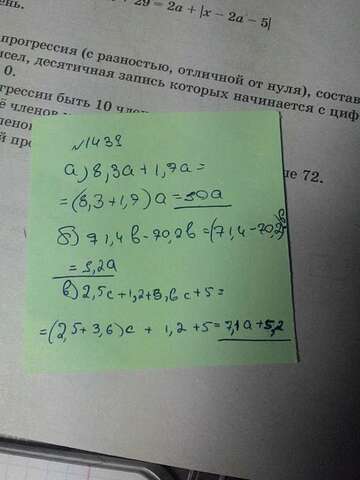 + 29 = 2a + |x − 2a − 5|
прогрессия (с разностью, отличной от нуля), состав
исел, десятичная запись которых начинается с циф
0.
грессии быть 10 член
ё членов
ше 72.
й про
№1439
а) 8,3а + 1,7а =
= (8,3 + 1,7) а = 10а
б) 71,4 в - 70,2 в = (71,4 - 70,2)в
= 1,2а
в) 2,5с + 1,2 + 3,6с + 5 =
= (2,5 + 3,6) с + 1,2 + 5 = 7,1а + 5,2